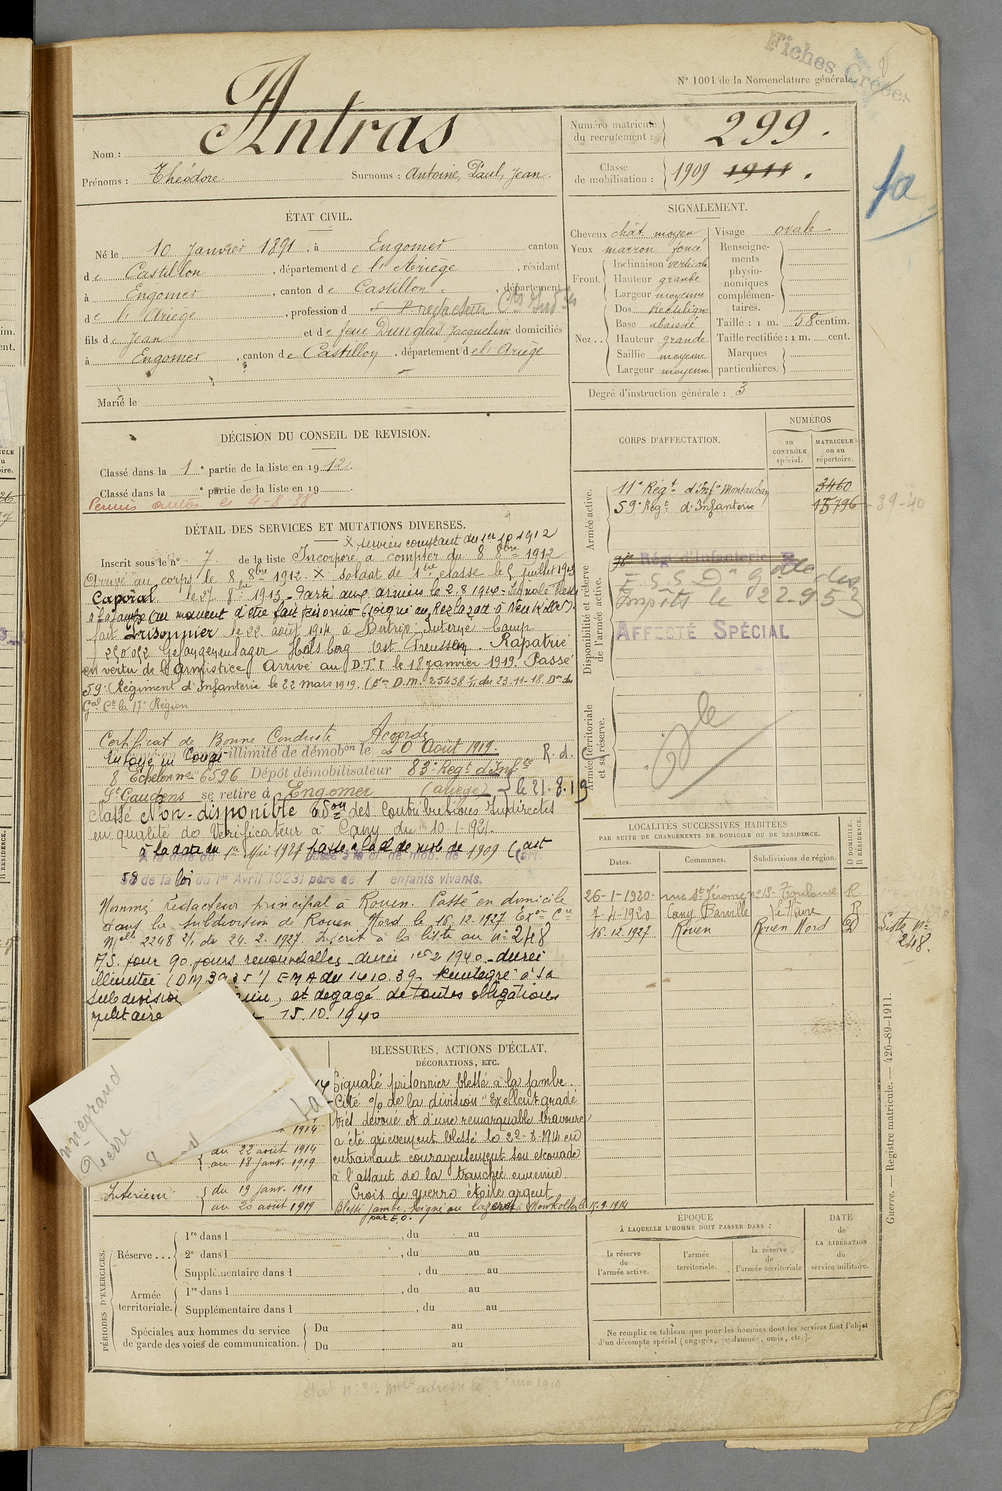 Fiches Créées
N° 1001 de la Nomenclature générale.
Nom : Antras
Prénoms : Théodore Surnoms : Antoine, Paul, Jean
Numéro matricule du recrutement : 299.
Classe de mobilisation : 1909 1911.
1a
ÉTAT CIVIL.
Né le 10 Janvier 1891, à Engomer canton
de Castillon, département de l'Ariège, résidant
à Engomer, canton de Castillon, département
de l'Ariège, profession de rédacteur
fils de Jean et de feue Dunglas Jacqueline domiciliés
à Engomer, canton de Castillon, département de l'Ariège
Marié le
SIGNALEMENT.
Cheveux chât moyen
Yeux marron foncé
Front
Inclinaison verticale
Hauteur grande
Largeur moyenne
Nez
Dos rectiligne
Base abaissée
Hauteur grande
Saillie moyenne
Largeur moyenne
Visage ovale
Renseignements physionomiques complémentaires.
Taille : 1 m. 58 centim.
Taille rectifiée : 1 m. cent.
Marques particulières.
Degré d'instruction générale : 3
DÉCISION DU CONSEIL DE REVISION.
Classé dans la 1e partie de la liste en 1912.
Classé dans la e partie de la liste en 19
Permis le 9-8-38
DÉTAIL DES SERVICES ET MUTATIONS DIVERSES.
X services comptant du 1er 10 1912
Inscrit sous le n° 7 de la liste Incorporé à compter du 8 8bre 1912
Arrivé au corps le 8 8bre 1912. X soldat de 1ère classe le 5 juillet 1913
Caporal le 27 8bre 1913. Parti aux armées le 2.8.1914. Signalé blessé
à la jambe au moment d'être fait prisonnier (soigné au Reslazad à Neukiller).
fait Prisonnier le 22 août 1914 à Interné Camp
Gefangenenlager Holsberg Ost Preussen. Rapatrié
en vertu de l'armistice. Arrivé au D.T.I le 18 janvier 1919. Passé
59e Régiment d'Infanterie le 22 mars 1919. (Don D.M. 25438 du 23-11-18. Don du
Gal Ct la 17e Région
Certificat de Bonne Conduite Accordé
Envoyé en Congé illimité de démobon le 20 Août 1919. R.d.
8e Echelon no 6596 Dépôt démobilisateur 83e Regt d'Infie
St Gaudens se retire à Engomer (Ariège) le 21.8.19
Classé Non-disponible 65on des contributions Indirectes
en qualité de Vérificateur à Cany du 10.1.1921.
à la date du 1er Mai 1927 passe à la cl. de mob. de 1909 (art
58 de la loi du 1er Avril 1923) père de 1 enfants vivants.
Nommé rédacteur principal à Rouen. Passé en domicile
dans la subdivision de Rouen Nord le 16.12.1927
Melle 2248 2/1 du 24.2.1927. Inscrit à la liste au n° 248
A.S. pour 90 jours renouvelables durée 1er 2 1940 durée
illimitée (DM 3035 1/EMA du 14.10.39. Réintégré à sa
subdivision, et dégagé de toutes obligations
militaires 15.10.1940
CORPS D'AFFECTATION.
NUMÉROS
au CONTRÔLE spécial.
MATRICULE ou au répertoire.
Armée active.
11e Regt d'Infie Montauban 3460
59e Regt d'Infanterie 15196 39-40
Disponibilité et réserve de l'armée active.
Régt d'Infanterie
F.S.S Don Gale des
Impôts le 22-9-53
AFFECTÉ SPÉCIAL
Armée territoriale et sa réserve.
LOCALITÉS SUCCESSIVES HABITÉES
PAR SUITE DE CHANGEMENTS DE DOMICILE OU DE RÉSIDENCE.
Dates. Communes. Subdivisions de région. D DOMICILE. R RÉSIDENCE.
26-1-1920 rue St Jérome no 18 Toulouse R
7-4-1920 Cany Barville Le Havre R
16.12.1927 Rouen Rouen Nord D
Liste no 248.
Guerre. — Registre matricule. — 426-89-1911.
1914
du 22 août 1914
au 18 janv. 1919
Intérieur du 19 janv. 1919
au 20 août 1919
Pierre
BLESSURES, ACTIONS D'ÉCLAT,
DÉCORATIONS, ETC.
Signalé prisonnier blessé à la jambe.
Cité % de la division "Excellent gradé
très dévoué et d'une remarquable bravoure
a été grièvement blessé le 22-8-1914 en
entraînant courageusement son escouade
à l'assaut de la tranchée ennemie.
Croix de guerre étoile argent
Blessé jambe, soigné au lazaret le 15.9.1914
par E.O.
PÉRIODES D'EXERCICES.
Réserve...
1re dans l , du au
2e dans l , du au
Supplémentaire dans l , du au
Armée territoriale.
1re dans l , du au
Supplémentaire dans l , du au
Spéciales aux hommes du service de garde des voies de communication.
Du au
Du au
ÉPOQUE
À LAQUELLE L'HOMME DOIT PASSER DANS :
la réserve de l'armée active.
l'armée territoriale.
la réserve de l'armée territoriale
DATE de LA LIBÉRATION du service militaire.
Ne remplir ce tableau que pour les hommes dont les services font l'objet
d'un décompte spécial (engagés, condamnés, omis, etc.).